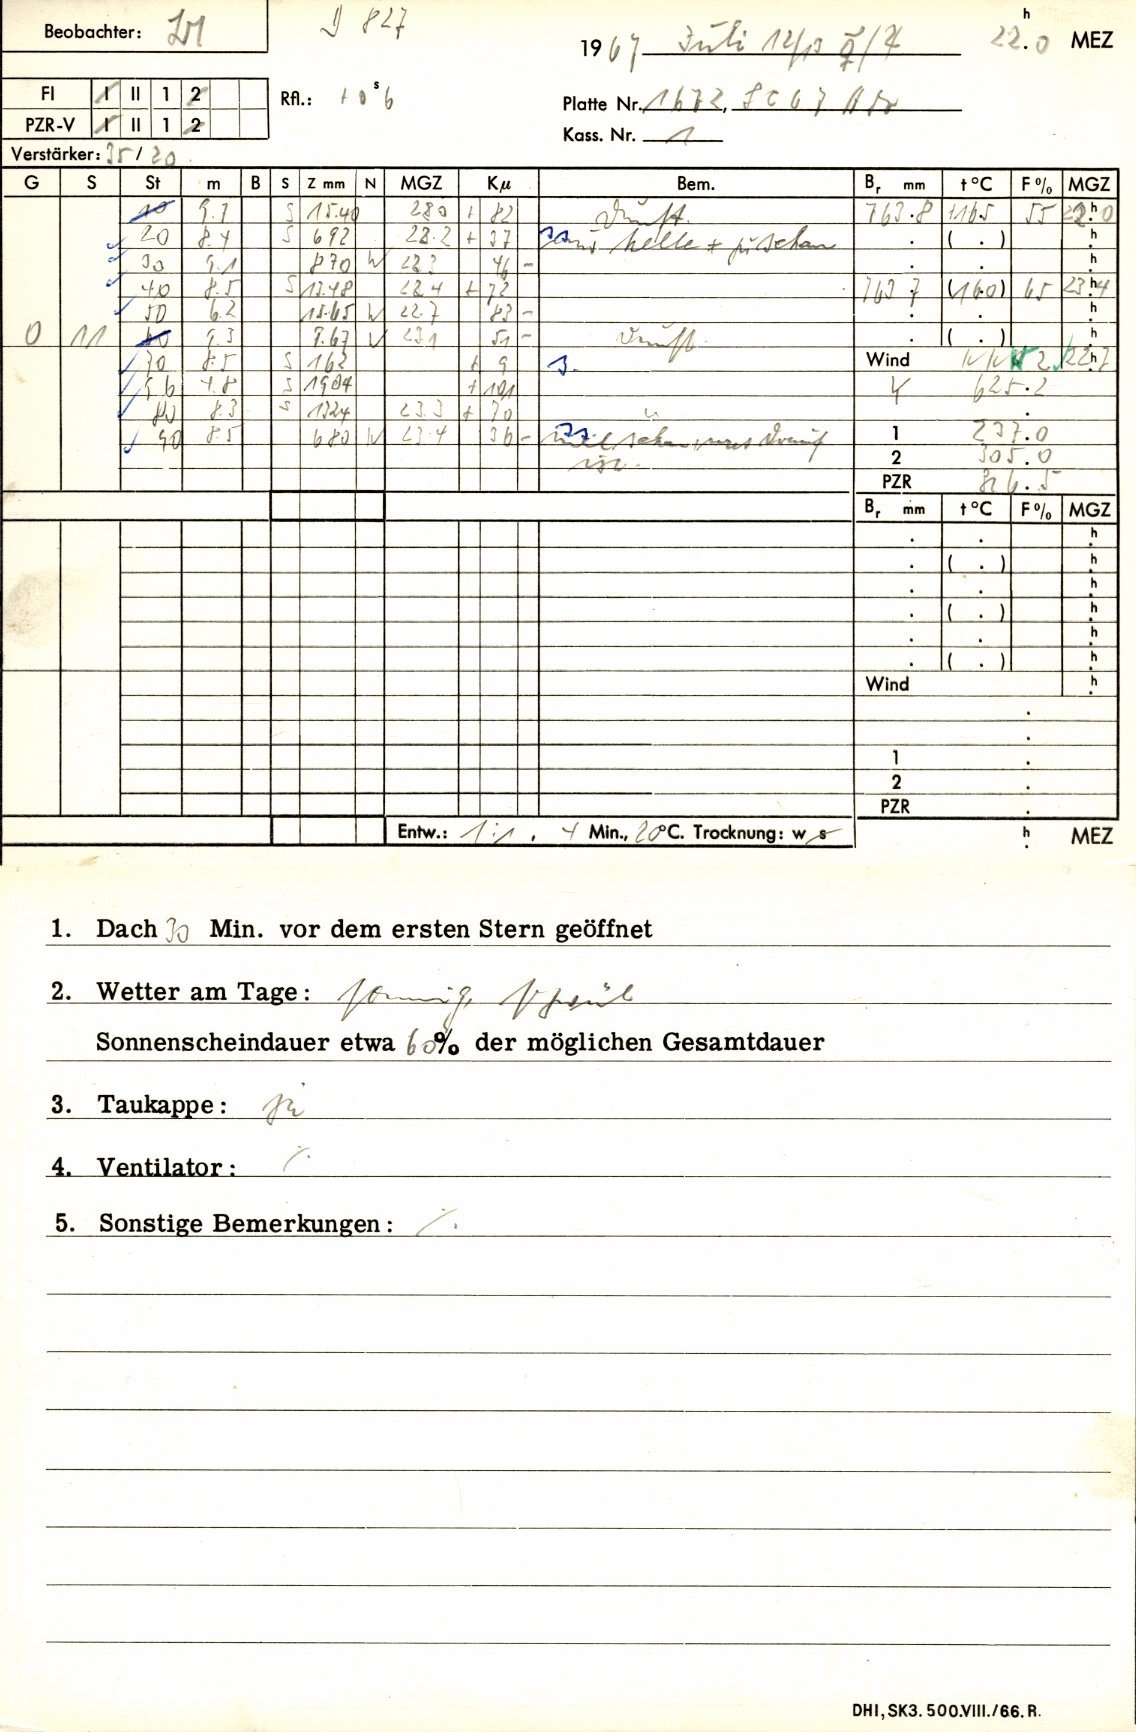 Beobachter:
D 827
1967 Juli 12/13 ☿/♃ 22h.0 MEZ
FI I II 1 2
Rfl.: +0s6
Platte Nr. 1672,
PZR-V I II 1 2
Kass. Nr. 1
Verstärker: 35/20
G S St m B S Z mm N MGZ Kμ Bem. Br mm t°C F% MGZ
10 9.7 S 15.40 + 82 Dunst. 763.8 +16.5 55 22h.0
20 8.4 S 692 22.2 + 37 helle + ( . ) h
30 9.1 870 W 46 - . . h
40 8.5 S 13.48 22.4 + 72 763 7 (16.0) 65 23h4
50 6.2 15.65 W 22.7 83 - . . h
0 11 60 9.3 9.67 W 231 51 - Dunst. ( . ) h
70 8.5 S 162 + 9 3. Wind W 2. 22h7
9b 4.8 S 1904 + 101 625.2
80 8.3 S 1324 23.3 + 70 .
90 8.5 680 W 23.4 36 - 1 237.0
ist. 2 305.0
PZR 86.5
Br mm t°C F% MGZ
. . h
( . ) h
. . h
( . ) h
. . h
( . ) h
Wind h
1 .
2 .
PZR .
Entw.: 1:1, 4 Min., 20°C. Trocknung: w s h MEZ
1. Dach 30 Min. vor dem ersten Stern geöffnet
2. Wetter am Tage: sonnig, schwül
Sonnenscheindauer etwa 60% der möglichen Gesamtdauer
3. Taukappe: ja
4. Ventilator: ·/.
5. Sonstige Bemerkungen: ·/.
DHI, SK3. 500.VIII./66. R.